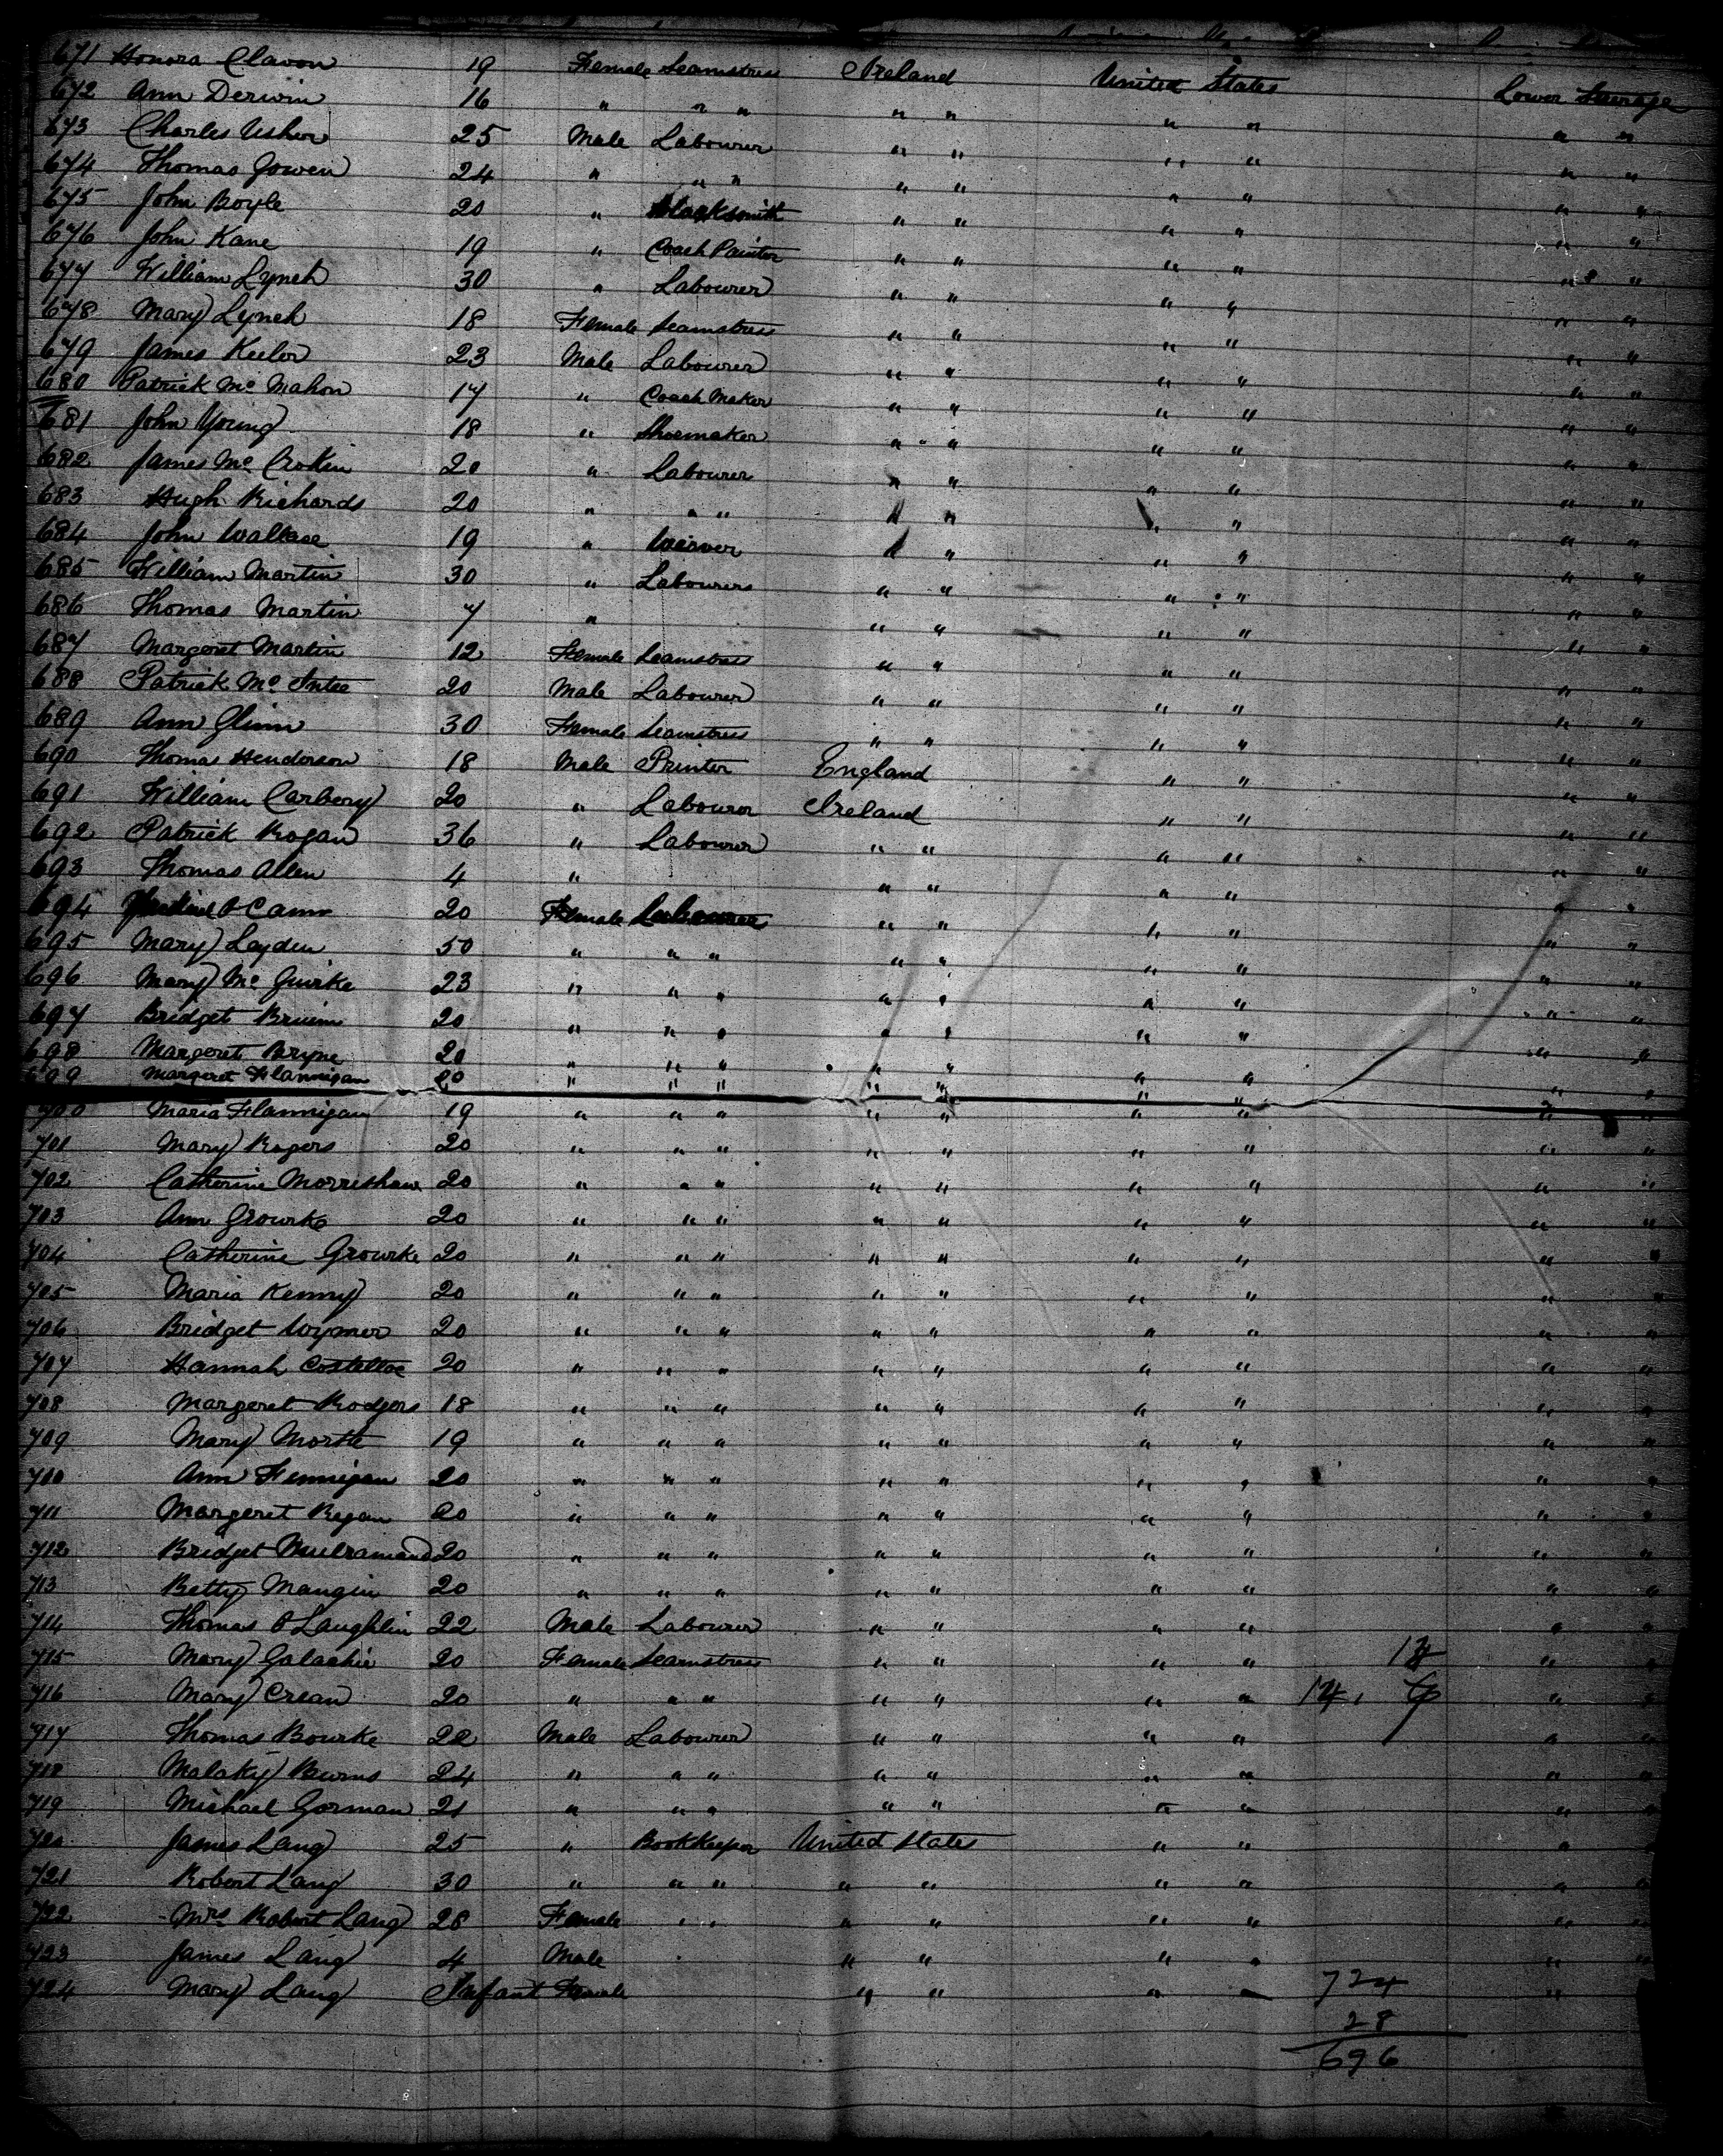 671 Honora Clavon 19 Female Seamstress Ireland United States Lower Steerage
672 Ann Derwin 16 " " " " " " " " "
673 Charles Usher 25 Male Labourer " " " " " "
674 Thomas Gowen 24 " " " " " " " " "
675 John Boyle 20 " Blacksmith " " " " " "
676 John Kane 19 " Coach Painter " " " " " "
677 William Lynch 30 " Labourer " " " " " "
678 Mary Lynch 18 Female Seamstress " " " " " "
679 James Keeler 23 Male Labourer " " " " " "
680 Patrick Mc Mahon 17 " Coach Maker " " " " " "
681 John Young 18 " Shoemaker " " " " " "
682 James Mc Crokin 20 " Labourer " " " " " "
683 Hugh Richards 20 " " " " " " " " "
684 John Wallace 19 " Weaver " " " " " "
685 William Martin 30 " Labourers " " " " " "
686 Thomas Martin 7 " " " " " " "
687 Margeret Martin 12 Female Seamstress " " " " " "
688 Patrick Mc Entee 20 Male Labourer " " " " " "
689 Ann Glinn 30 Female Seamstress " " " " " "
690 Thomas Henderson 18 Male Printer England " " " "
691 William Carbery 20 " Labourer Ireland " " " "
692 Patrick Rogan 36 " Labourer " " " " " "
693 Thomas Allen 4 " " " " " " "
694 O Cann 20 Female " " " " " "
695 Mary Leyden 50 " " " " " " " " "
696 Mary Mc Guirke 23 " " " " " " " " "
697 Bridget Bruin 20 " " " " " " " " "
698 Margeret Bryne 20 " " " " " " " " "
699 Margeret Flannigan 20 " " " " " " " " "
700 Maria Flannigan 19 " " " " " " " " "
701 Mary Rogers 20 " " " " " " " " "
702 Catherine Morrishaw 20 " " " " " " " " "
703 Ann Grourke 20 " " " " " " " " "
704 Catherine Grourke 20 " " " " " " " " "
705 Maria Kenny 20 " " " " " " " " "
706 Bridget Wymer 20 " " " " " " " " "
707 Hannah Costelloe 20 " " " " " " " " "
708 Margeret Rodgers 18 " " " " " " " " "
709 Mary 19 " " " " " " " " "
710 Ann Fennigan 20 " " " " " " " " "
711 Margeret Regan 20 " " " " " " " " "
712 Bridget 20 " " " " " " " " "
713 Betty Mangin 20 " " " " " " " " "
714 Thomas O Laughlin 22 Male Labourer " " " " " "
715 Mary Galachie 20 Female Seamstress " " " " " "
716 Mary Crean 20 " " " " " " " " "
717 Thomas Bourke 22 Male Labourer " " " " " "
718 Malaky Burns 24 " " " " " " " " "
719 Michael Gorman 21 " " " " " " " " "
720 James Lang 25 " BookKeeper United States " " "
721 Robert Lang 30 " " " " " " " " "
722 Mrs Robert Lang 28 Female " " " " " " " "
723 James Lang 4 Male " " " " " "
724 Mary Lang Infant Female " " " " "
724
28
696